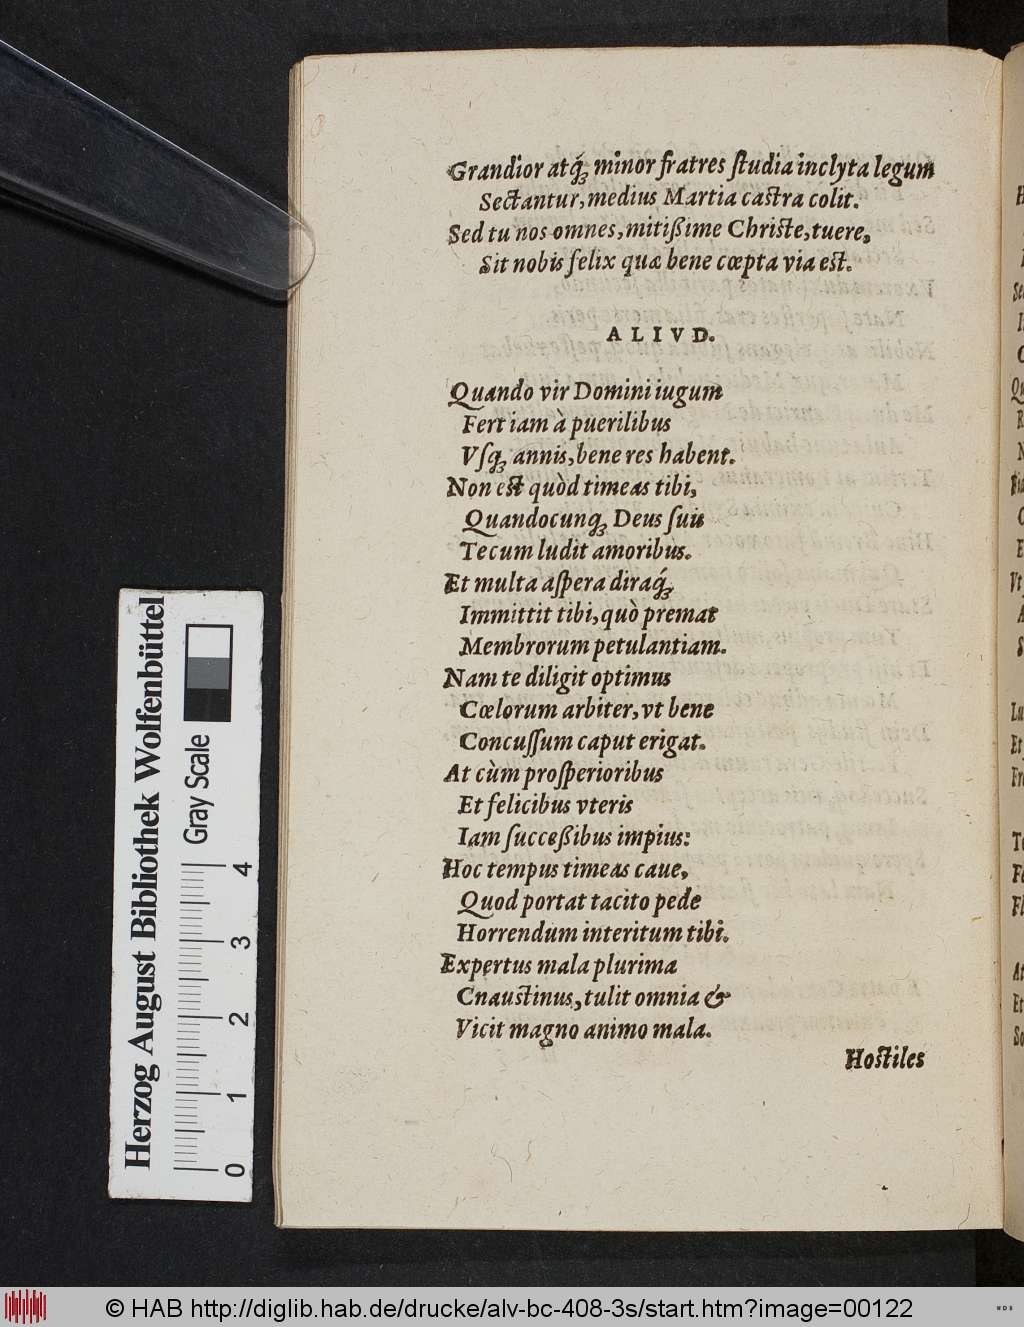 Grandior atq́ꝫ minor fratres ſtudia inclyta legum
Sectantur, medius Martia caſtra colit.
Sed tu nos omnes, mitißime Chriſte, tuere,
Sit nobis felix quæ bene cœpta via eſt.
ALIVD.
Quando vir Domini iugum
Fert iam à puerilibus
Vſqꝫ annis, bene res habent.
Non eſt quòd timeas tibi,
Quandocunqꝫ Deus ſuis
Tecum ludit amoribus.
Et multa aſpera diraq́ꝫ
Immittit tibi, quò premat
Membrorum petulantiam.
Nam te diligit optimus
Cœlorum arbiter, vt bene
Concuſſum caput erigat.
At cùm proſperioribus
Et felicibus vteris
Iam ſucceßibus impius:
Hoc tempus timeas caue,
Quod portat tacito pede
Horrendum interitum tibi.
Expertus mala plurima
Cnauſtinus, tulit omnia &
Vicit magno animo mala.
Hoſtiles
Herzog August Bibliothek Wolfenbüttel
Gray Scale
0 1 2 3 4
© HAB http://diglib.hab.de/drucke/alv-bc-408-3s/start.htm?image=00122